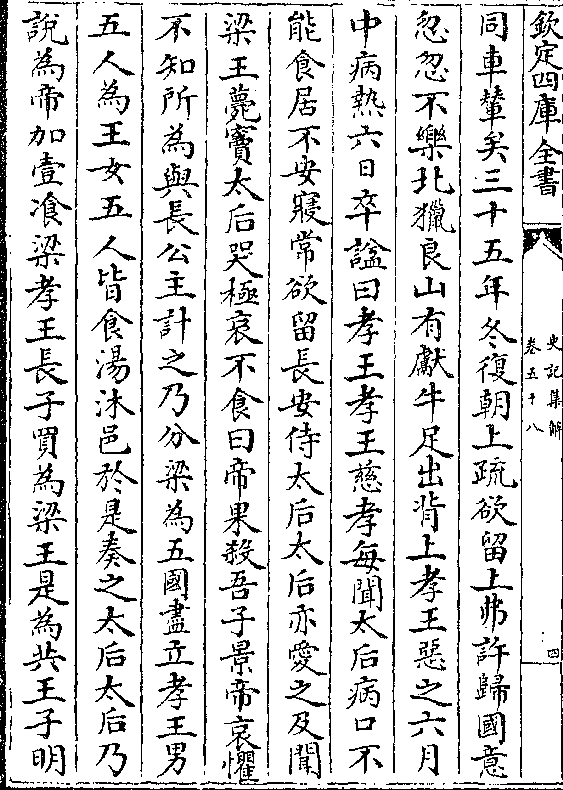 欽定四庫全書
史記集解
卷五十八
四
同車輦矣三十五年冬復朝上疏欲留上弗許歸國意
忽忽不樂北獵良山有獻牛足出背上孝王惡之六月
中病熱六日卒諡曰孝王孝王慈孝每聞太后病口不
能食居不安寢常欲留長安侍太后太后亦愛之及聞
梁王薨竇太后哭極哀不食曰帝果殺吾子景帝哀懼
不知所為與長公主計之乃分梁為五國盡立孝王男
五人為王女五人皆食湯沐邑於是奏之太后太后乃
說為帝加壹飡梁孝王長子買為梁王是為共王子明